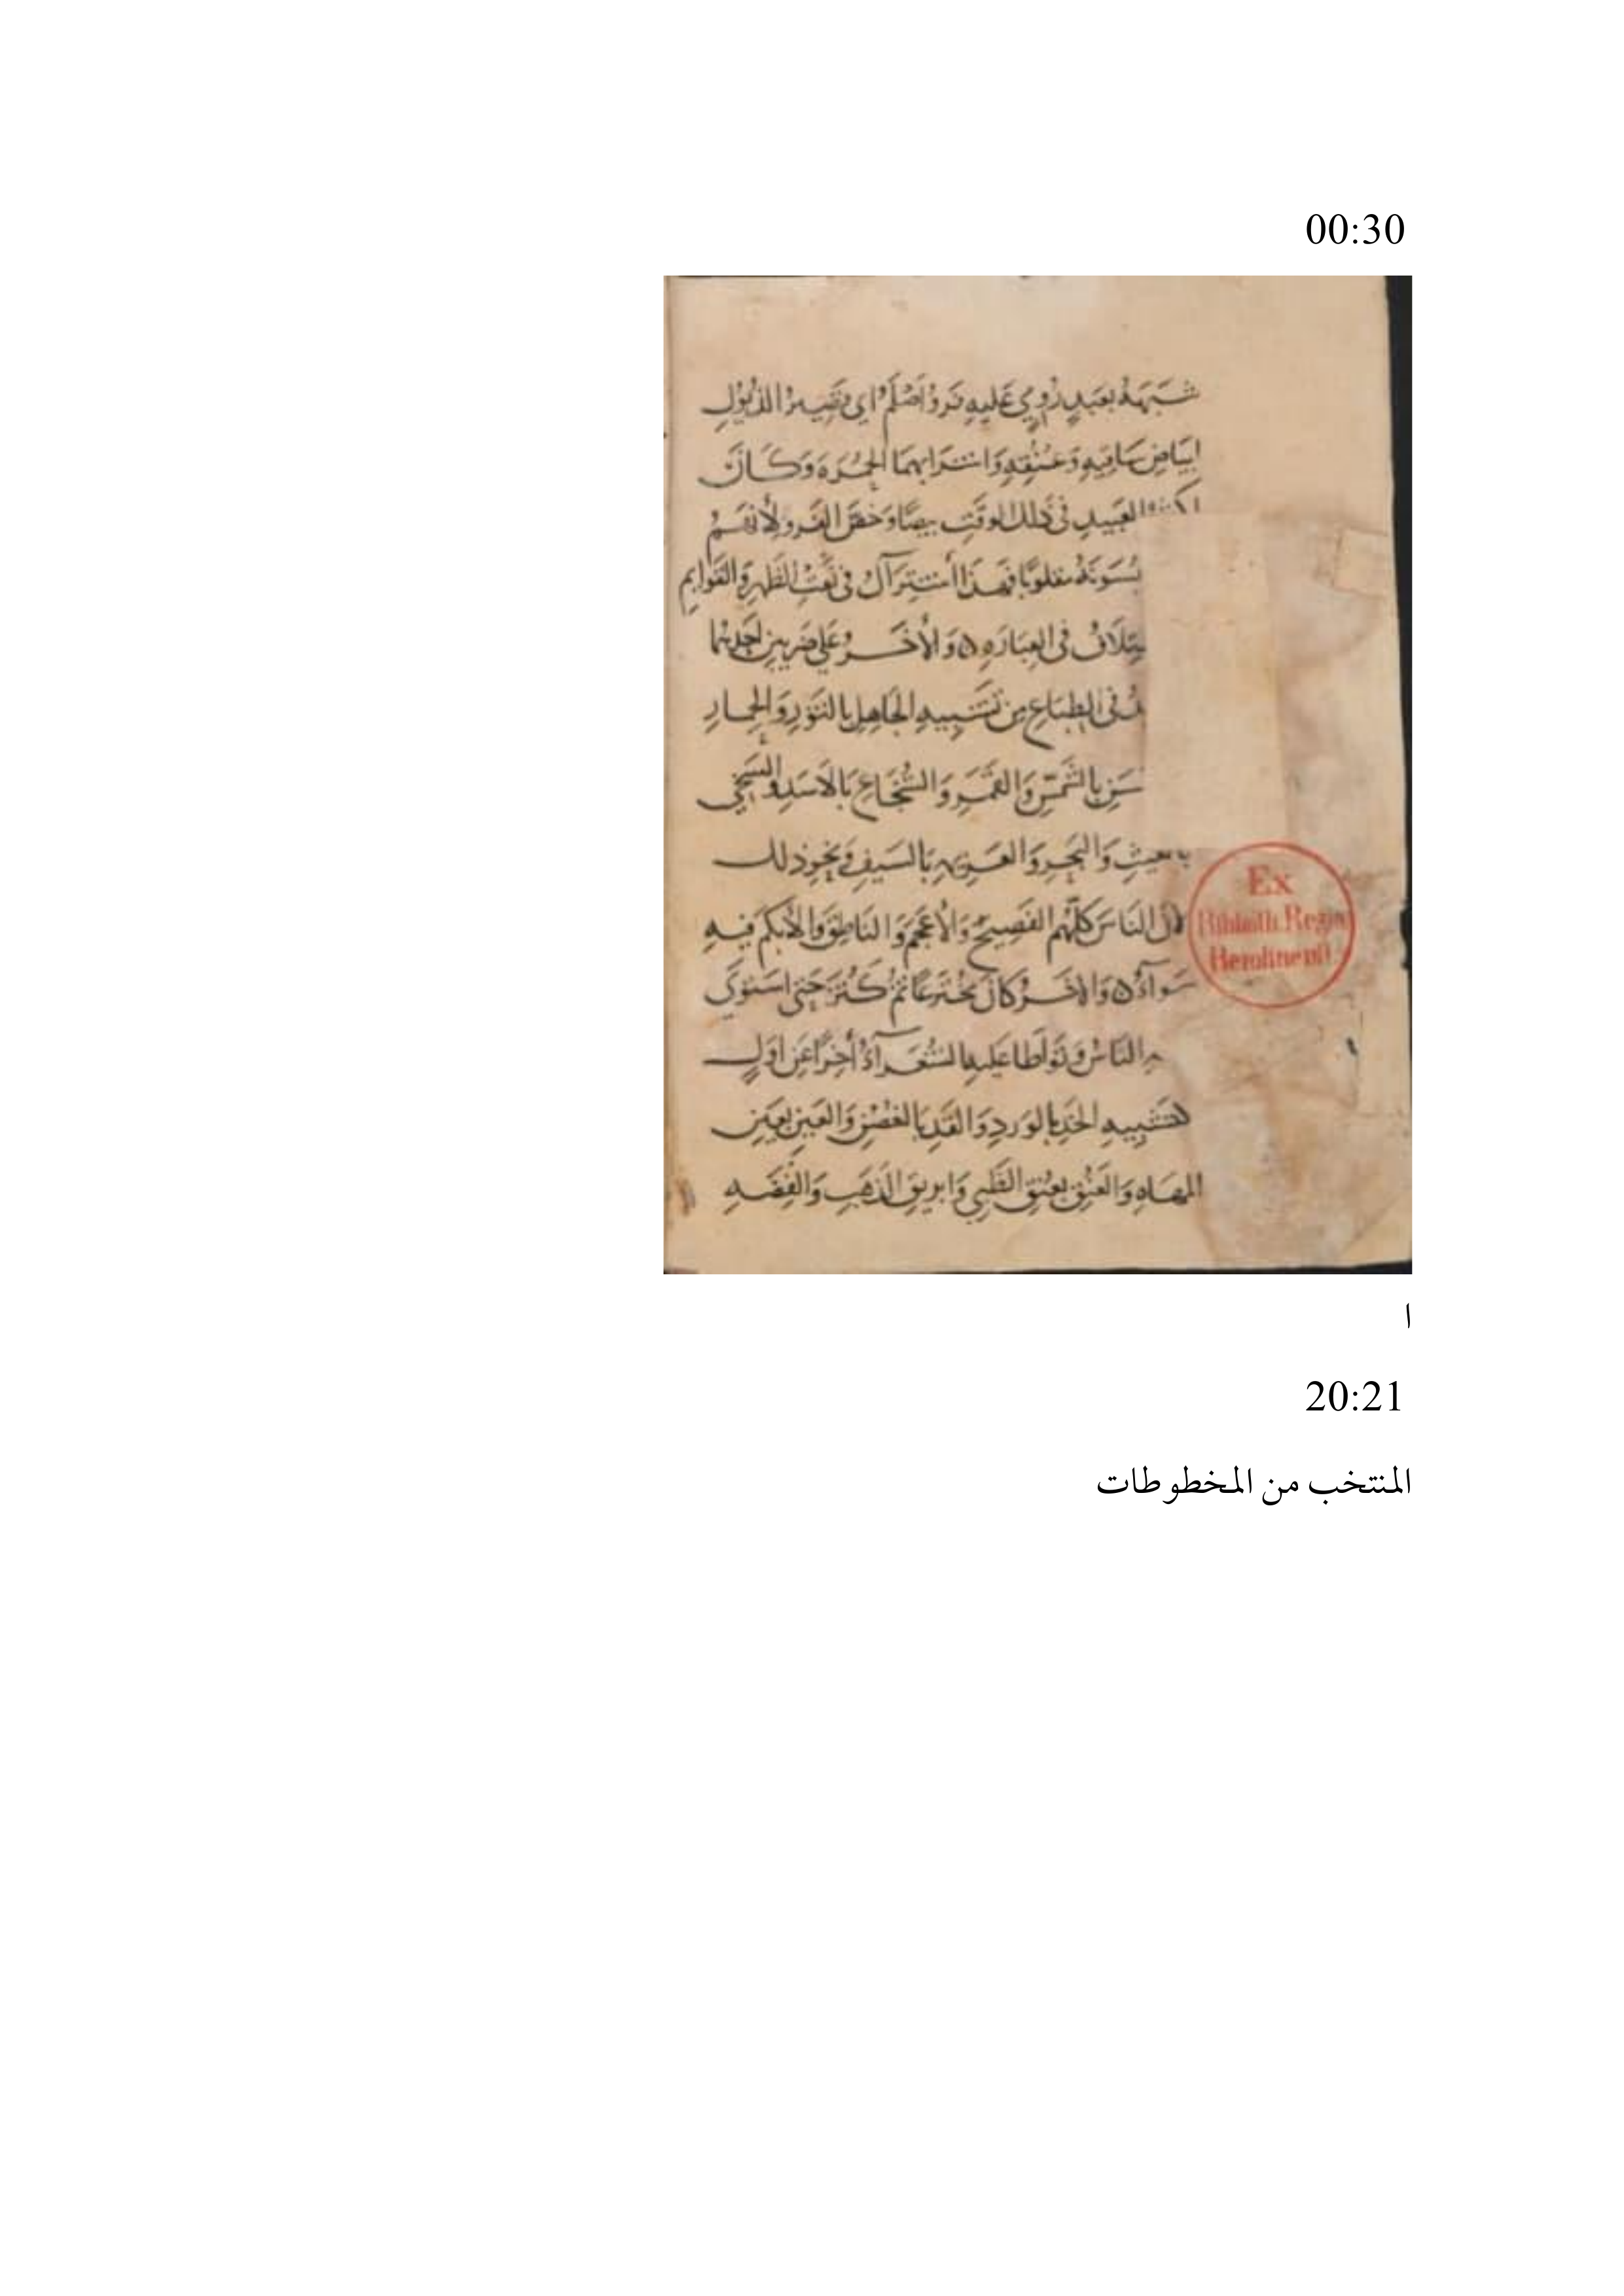 00:30
شَبَّهَهُ بعَبدٍ رُومِيٍّ عَليهِ فَروٌ أَصْلَمُ اي قَصِيرُ الذُّيُولِ
لبَيَاضِ سَاقَيهِ وَعُنُقِهِ وَاشترابهمَا الحُمْرَهَ وَكَانَ
العَبيدِ في ذَلك الوَقتِ بيضًا وَخَصَّ الفَروَ لأنَّهُمْ
يَلبَسُونَهُ مقلوبًا فهَذا اشتِرَآكٌ في نَعْتِ الظَّهرِ وَالقَوَايمِ
في العِبَارَهِ ٥ وَالأخَرُ عَلى ضَربَينِ احَدُهُمَا
في الطِبَاعِ مِن تَشبِيهِ الجَاهِلِ بالثَورِ وَالحِمَارِ
بالشَّمسِ وَالقَمَرِ وَالشُّجَاعِ بَالأسَدِ وَالسَّخِي
وَالبَحرِ وَالعَزيمهِ بَالسَيفِ وَنحوِ ذلك
لأن النَاسَ كلَّهُم الفَصِيحُ وَالأعجَم وَالنَاطِقَ وَالأبكَم فيهِ
سَوآءٌ ٥ وَالأخَرُ كَانَ مُختَرعًا ثمَّ كَثُرَ حَتى استَوَى
النَاسُ وَتَوَاطَا عَليهِ الشُّعَرآءُ أخِرًا عَن اولٍ
كتَشبِيهِ الخَدِّ بالوَردِ وَالقَدِّ بَالغُصْنِ وَالعَينِ بعَينِ
المَهَاهِ وَالعُنُقِ بعُنقِ الظَبي وَابريقِ الذَّهَبِ وَالفِضَّهِ
Ex
Biblioth. Regia
Berolinensi.
ا
20:21
المنتخب من المخطوطات